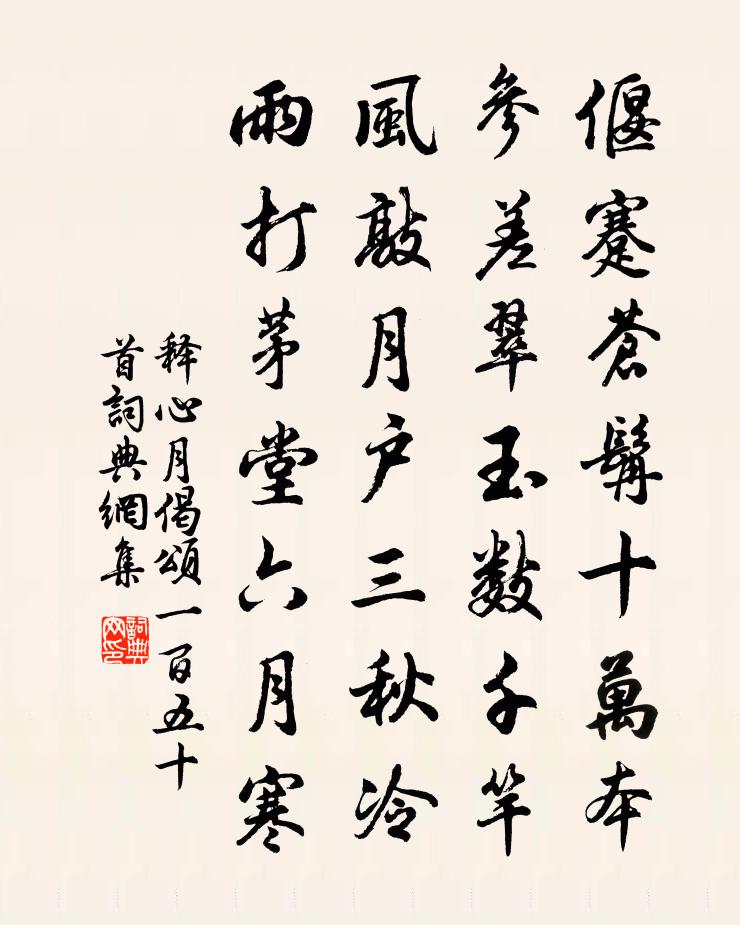 偃蹇蒼髯十萬本
參差翠玉數千竿
風敲月户三秋冷
雨打茅堂六月寒
释心月偈頌一百五十
首詞典網集
詞典
网印